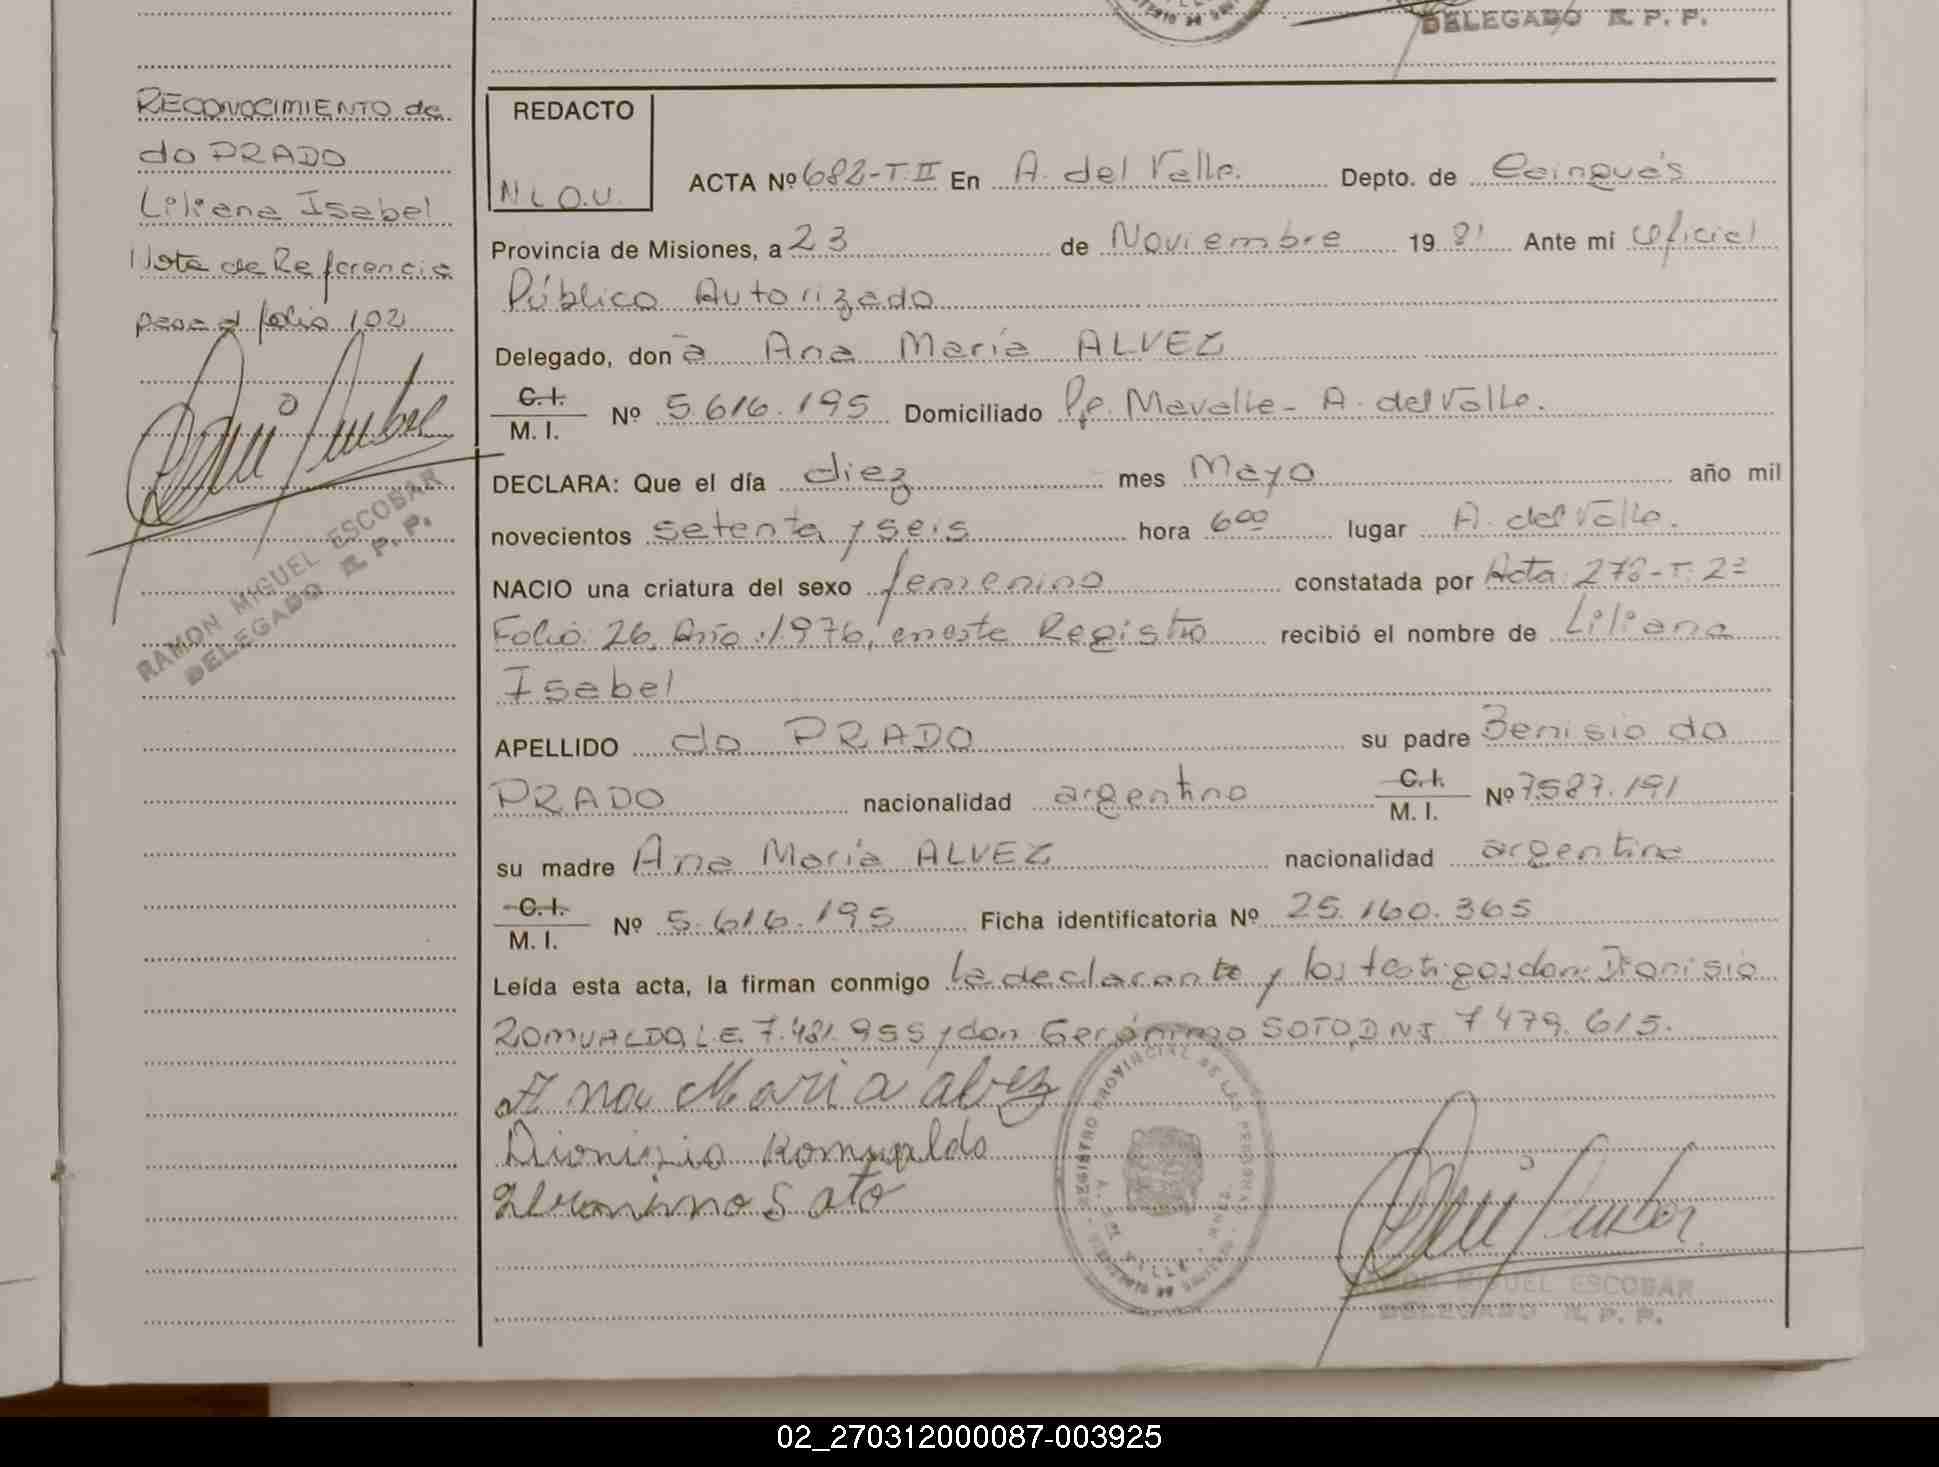 DELEGADO R. P. P.
RECONOCIMIENTO de
do PRADO
Liliana Isabel
Nota de Referencia
pasa al folio 102
RAMON MIGUEL ESCOBAR
DELEGADO R. P. P.
REDACTO
N L O.U.
ACTA Nº 682-T.II En A. del Valle. Depto. de Cainguás
Provincia de Misiones, a 23 de Noviembre 1981 Ante mí Oficial
Público Autorizado
Delegado, don a Ana María ALVEZ
C. I.
M. I. Nº 5.616.195 Domiciliado Pje. Mavalle - A. del Valle.
DECLARA: Que el día diez mes Mayo año mil
novecientos setenta y seis hora 6⁰⁰ lugar A. del Valle.
NACIO una criatura del sexo femenino constatada por Acta: 278-T. 2º
Folio: 26, Año: 1976, en este Registro recibió el nombre de Liliana
Isabel
APELLIDO do PRADO su padre Benisio do
PRADO nacionalidad argentino C. I. M. I. Nº 7.587.191
su madre Ana María ALVEZ nacionalidad argentina
C. I.
M. I. Nº 5.616.195 Ficha identificatoria Nº 25.160.365
Leída esta acta, la firman conmigo la declarante y los testigos don: Dionisio
ROMUALDO, L.E. 7.481.955 y don Gerónimo SOTO, D N I. 7 479. 615.
Ana Maria alvez
Dionizio Romualdo
Geronimo Soto
REGISTRO PROVINCIAL DE LAS PERSONAS
RAMON MIGUEL ESCOBAR
DELEGADO R. P. P.
02_270312000087-003925